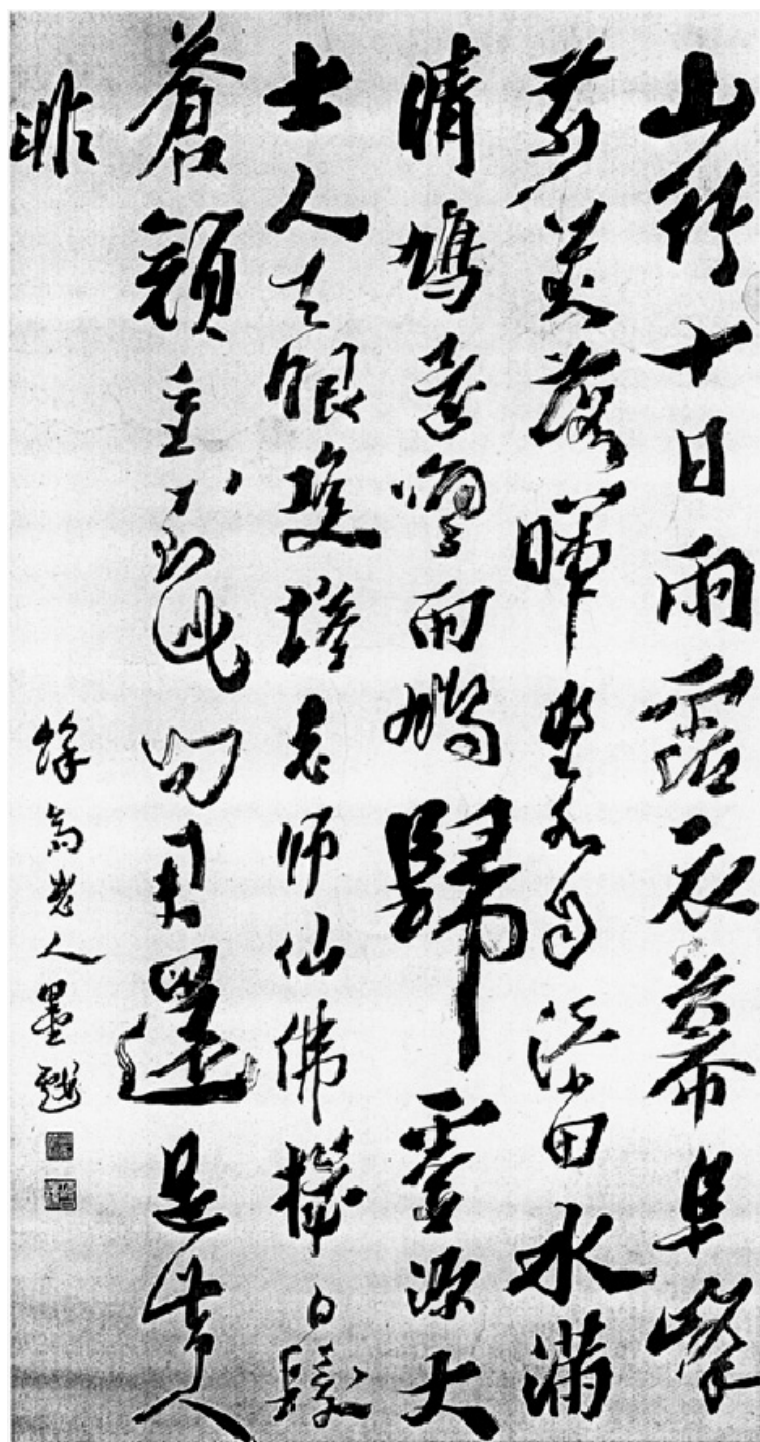 山行十日雨霑衣幕阜峰
前對落暉野水自添田水滿
晴鳩却喚雨鳩歸靈源大
士人天眼雙塔老師仙佛機白髮
蒼顏重到此問君還是昔人
非
老人墨戲